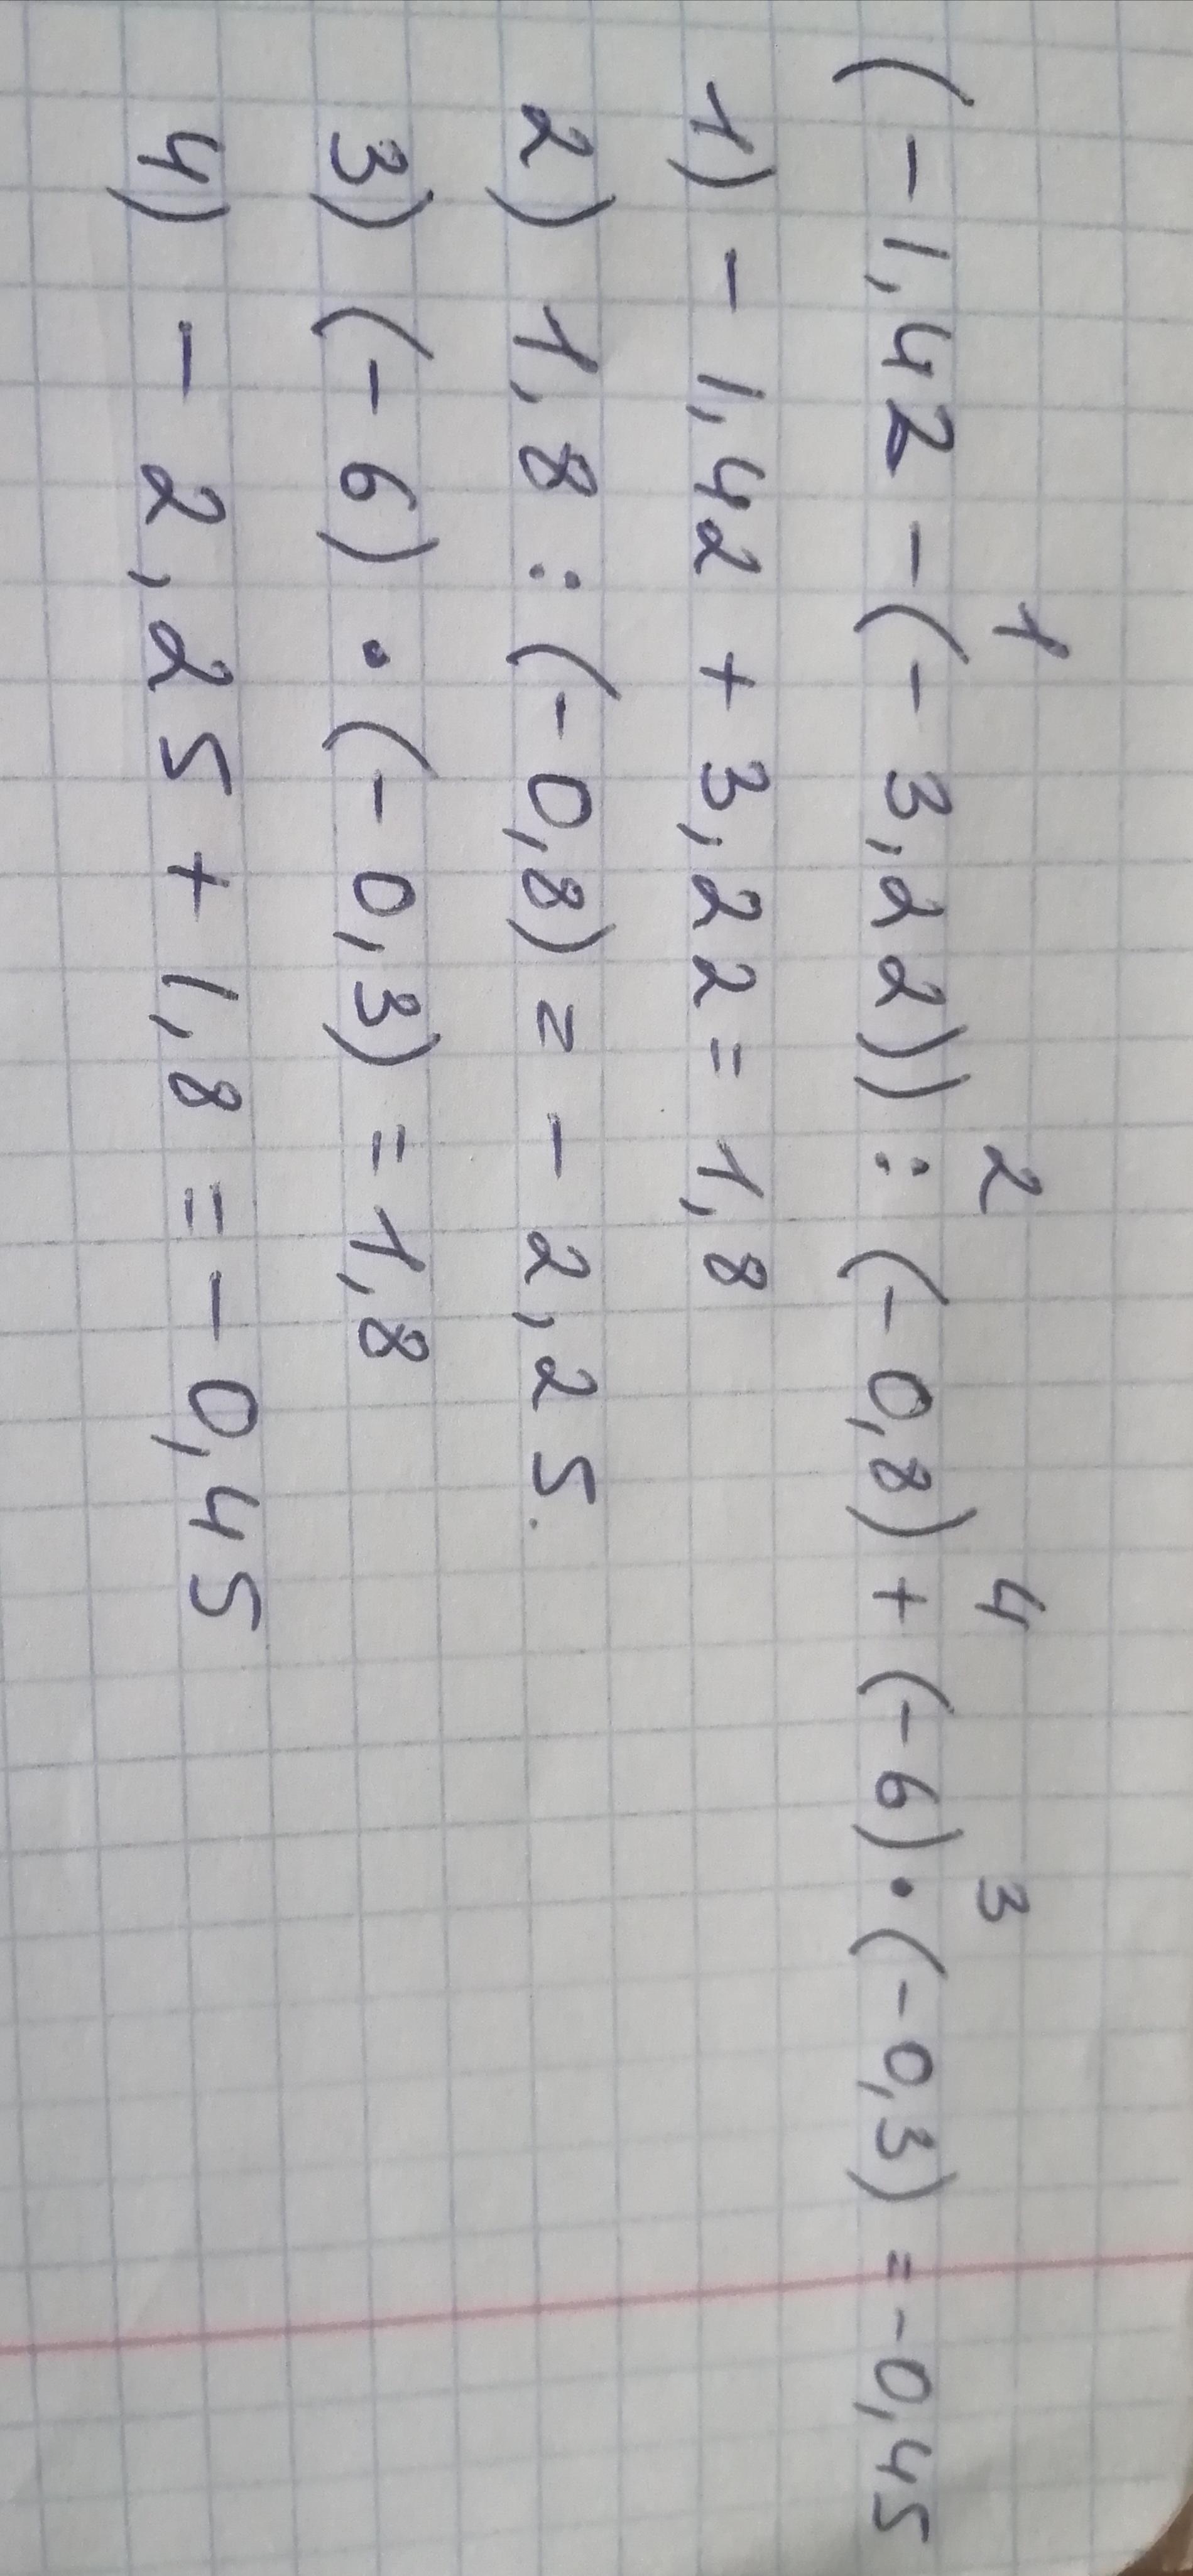 1 2 4 3
(-1,42-(-3,22)):(-0,8)+(-6)·(-0,3)=-0,45
1) -1,42+3,22=1,8
2) 1,8:(-0,8)=-2,25.
3) (-6)·(-0,3)=1,8
4) -2,25+1,8=-0,45